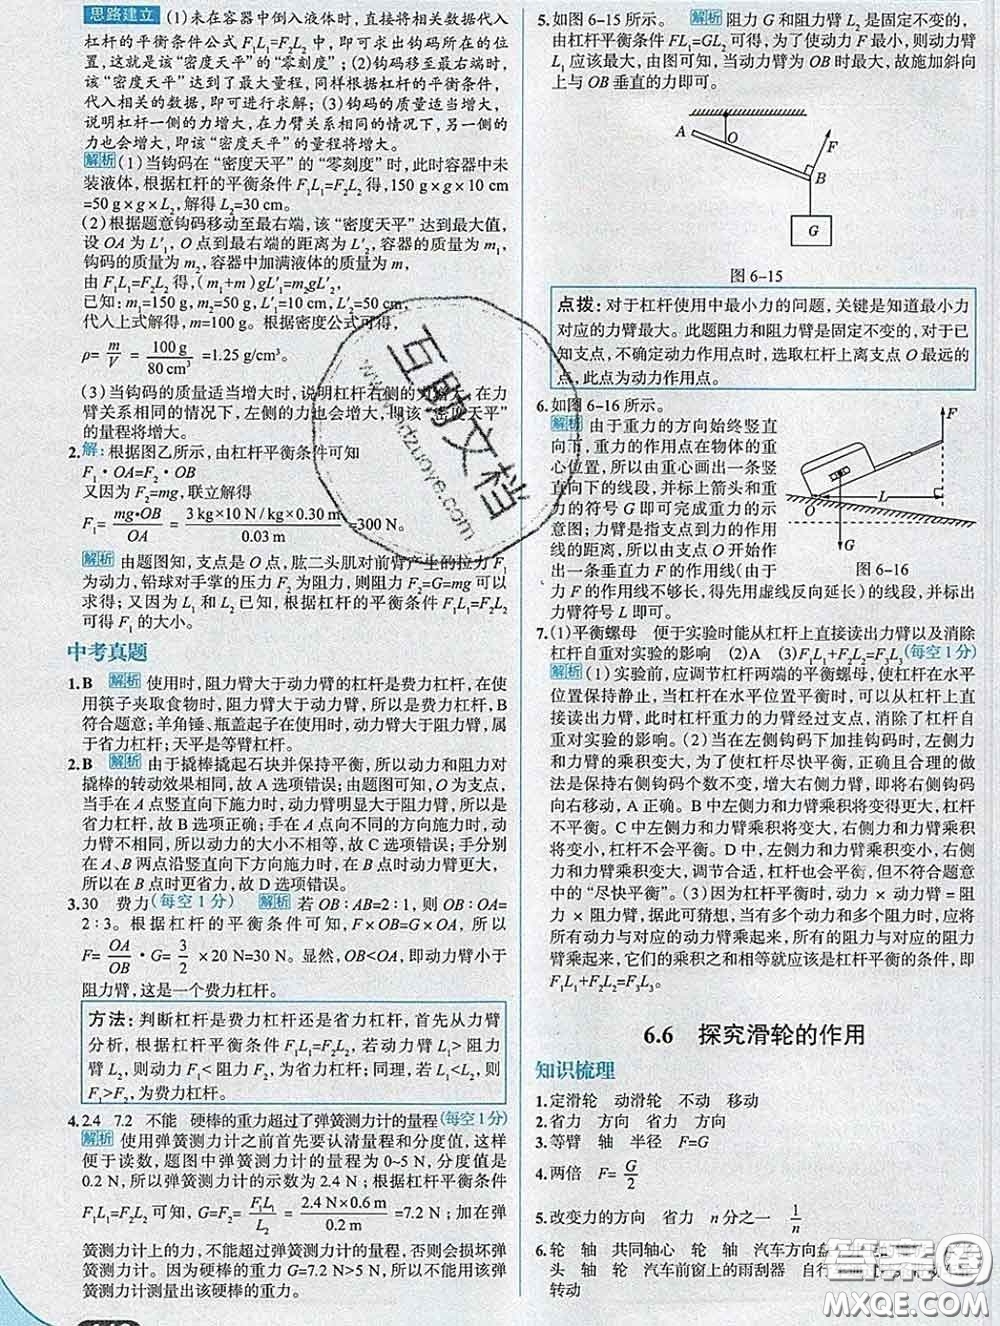 思路建立 (1)未在容器中倒入液体时,直接将相关数据代入
杠杆的平衡条件公式F₁L₁=F₂L₂中,即可求出钩码所在的位
置,这就是该“密度天平”的“零刻度”;(2)钩码移至最右端时,
该“密度天平”达到了最大量程,同样根据杠杆的平衡条件,
代入相关的数据,即可进行求解;(3)钩码的质量适当增大,
说明杠杆一侧的力增大,在力臂关系相同的情况下,另一侧的
力也会增大,即该“密度天平”的量程将增大。
解析 (1)当钩码在“密度天平”的“零刻度”时,此时容器中未
装液体,根据杠杆的平衡条件F₁L₁=F₂L₂得,150 g×g×10 cm
=50 g×g×L₂,解得L₂=30 cm。
(2)根据题意钩码移动至最右端,该“密度天平”达到最大值,
设OA为L′₁,O点到最右端的距离为L′₂,容器的质量为m₁,
钩码的质量为m₂,容器中加满液体的质量为m,
由F₁L₁=F₂L₂得,(m₁+m)gL′₁=m₂gL′₂,
已知:m₁=150 g,m₂=50 g,L′₁=10 cm,
代入上式解得,m=100 g。根据密度公式可得,
ρ=m/V=100 g/80 cm³=1.25 g/cm³。
(3)当钩码的质量适当增大时,说明杠杆右侧的力增大,在力
臂关系相同的情况下,左侧的力也会增大,即该“密度天平”
的量程将增大。
2.解:根据图乙所示,由杠杆平衡条件可知
F₁·OA=F₂·OB
又因为F₂=mg,联立解得
F₁=mg·OB/OA=3 kg×10 N/kg×0.30 m/0.03 m=300 N。
解析 由题图知,支点是O点,肱二头肌对前臂产生的拉力F₁
为动力,铅球对手掌的压力F₂为阻力,则阻力F₂=G=mg可以
求得;又因为L₁和L₂已知,根据杠杆的平衡条件F₁L₁=F₂L₂
可得F₁的大小。
中考真题
1.B 解析 使用时,阻力臂大于动力臂的杠杆是费力杠杆,在使
用筷子夹取食物时,阻力臂大于动力臂,所以是费力杠杆,B
符合题意;羊角锤、瓶盖起子在使用时,动力臂大于阻力臂,属
于省力杠杆;天平是等臂杠杆。
2.B 解析 由于撬棒撬起石块并保持平衡,所以动力和阻力对
撬棒的转动效果相同,故A选项错误;由题图可知,O为支点,
当手在A点竖直向下施力时,动力臂明显大于阻力臂,所以是
省力杠杆,故B选项正确;手在A点向不同的方向施力时,动
力臂不相同,所以动力的大小不相等,故C选项错误;手分别
在A、B两点沿竖直向下方向施力时,在A点时动力臂更大,
所以在A点时更省力,故D选项错误。
3.30 费力(每空1分) 解析 若OB∶AB=2∶1,则OB∶OA=
2∶3。根据杠杆的平衡条件可知,F×OB=G×OA,所以
F=OA/OB·G=3/2×20 N=30 N。显然,OB<OA,即动力臂小于
阻力臂,这是一个费力杠杆。
方法:判断杠杆是费力杠杆还是省力杠杆,首先从力臂
分析,根据杠杆平衡条件F₁L₁=F₂L₂,若动力臂L₁>阻力
臂L₂,则动力F₁<阻力F₂,为省力杠杆;同理,若L₁<L₂,则
F₁>F₂,为费力杠杆。
4.2.4 7.2 不能 硬棒的重力超过了弹簧测力计的量程(每空1分)
解析 使用弹簧测力计之前首先要认清量程和分度值,这样
便于读数,题图中弹簧测力计的量程为0~5 N,分度值是
0.2 N,所以弹簧测力计的示数为2.4 N;根据杠杆平衡条件
F₁L₁=F₂L₂可知,G=F₂=F₁L₁/L₂=2.4 N×0.6 m/0.2 m=7.2 N;加在弹
簧测力计上的力,不能超过弹簧测力计的量程,否则会损坏弹簧
测力计。因为硬棒的重力G=7.2 N>5 N,所以不能用该弹
簧测力计测量出该硬棒的重力。
5.如图6-15所示。 解析 阻力G和阻力臂L₂是固定不变的,
由杠杆平衡条件FL₁=GL₂可得,为了使动力F最小,则动力臂
L₁应该最大,由图可知,当动力臂为OB时最大,故施加斜向
上与OB垂直的力即可。
A O F B G
图6-15
点拨:对于杠杆使用中最小力的问题,关键是知道最小力
对应的力臂最大。此题阻力和阻力臂是固定不变的,对于已
知支点,不确定动力作用点时,选取杠杆上离支点O最远的
点,此点为动力作用点。
6.如图6-16所示。
解析 由于重力的方向始终竖直
向下,重力的作用点在物体的重
心位置,所以由重心画出一条竖
直向下的线段,并标上箭头和重
力的符号G即可完成重力的示
意图;力臂是指支点到力的作用
线的距离,所以由支点O开始作
出一条垂直力F的作用线(由于
力F的作用线不够长,得先用虚线反向延长)的线段,并标出
力臂符号L即可。
F L O G
图6-16
7.(1)平衡螺母 便于实验时能从杠杆上直接读出力臂以及消除
杠杆自重对实验的影响 (2)A (3)F₁L₁+F₂L₂=F₃L₃(每空1分)
解析 (1)实验前,应调节杠杆两端的平衡螺母,使杠杆在水平
位置保持静止,当杠杆在水平位置平衡时,可以从杠杆上直
接读出力臂,此时杠杆重力的力臂经过支点,消除了杠杆自
重对实验的影响。(2)当在左侧钩码下加挂钩码时,左侧力
和力臂的乘积变大,为了使杠杆尽快平衡,正确合理的操作
法是保持右侧钩码个数不变,增大右侧力臂,即将右侧钩码
向右移动,A正确。B中左侧力和力臂乘积将变得更大,杠杆
不平衡。C中左侧力和力臂乘积将变大,右侧力和力臂乘积
变小,杠杆不会平衡。D中,左侧力和力臂乘积变小,右侧力
和力臂乘积也变小,杠杆也会平衡,但不符合题意
中的“尽快平衡”。(3)因为杠杆平衡时,动力×动力臂=阻
力×阻力臂,据此可猜想,当有多个动力和多个阻力时,应将
所有动力与对应的动力臂乘起来,所有的阻力与对应的阻力
臂乘起来,它们的乘积之和相等就应该是杠杆平衡的条件,即
F₁L₁+F₂L₂=F₃L₃。
6.6 探究滑轮的作用
知识梳理
1.定滑轮 动滑轮 不动 移动
2.省力 方向 力 方向
3.等臂 轴 半径 F=G
4.两倍 F=G/2
5.改变力的方向 省力 n分之一 1/n
6.轮 轴 共同轴心 轮 轴 汽车方向盘
头 轴 轮 汽车前窗上的雨刮器 自行
转动
互助文档
com
答案圈
MXQE.COM